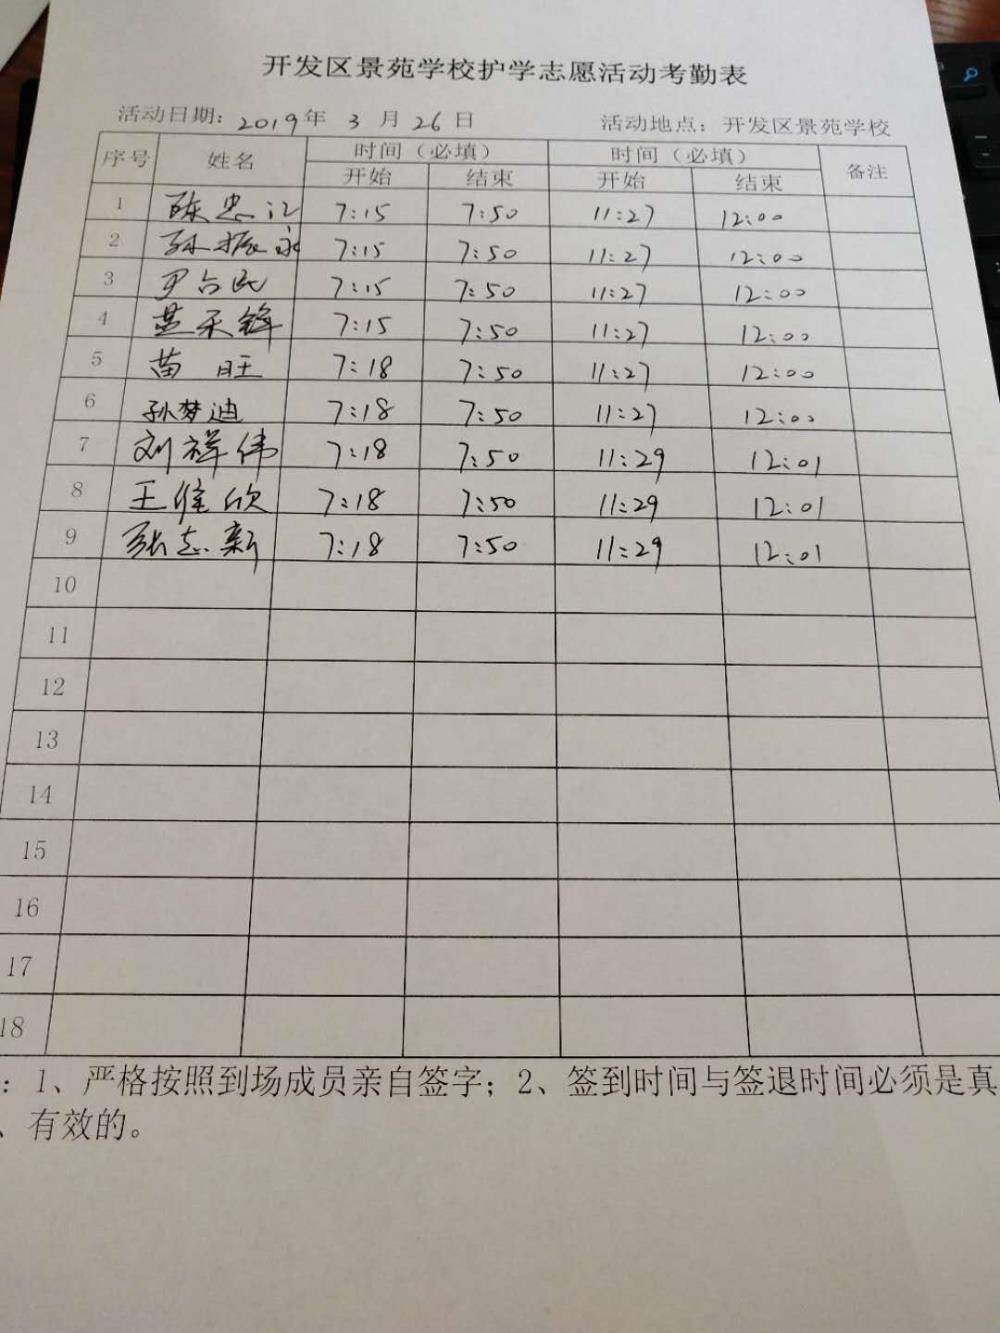 开发区景苑学校护学志愿活动考勤表
活动日期：2019年 3 月 26 日 活动地点：开发区景苑学校
序号 姓名 时间（必填） 时间（必填） 备注
开始 结束 开始 结束
1 陈忠江 7:15 7:50 11:27 12:00
2 孙振永 7:15 7:50 11:27 12:00
3 尹占民 7:15 7:50 11:27 12:00
4 7:15 7:50 11:27 12:00
5 苗旺 7:18 7:50 11:27 12:00
6 孙梦迪 7:18 7:50 11:27 12:00
7 刘祥伟 7:18 7:50 11:29 12:01
8 王维欣 7:18 7:50 11:29 12:01
9 张志新 7:18 7:50 11:29 12:01
10
11
12
13
14
15
16
17
18
：1、严格按照到场成员亲自签字；2、签到时间与签退时间必须是真
、有效的。